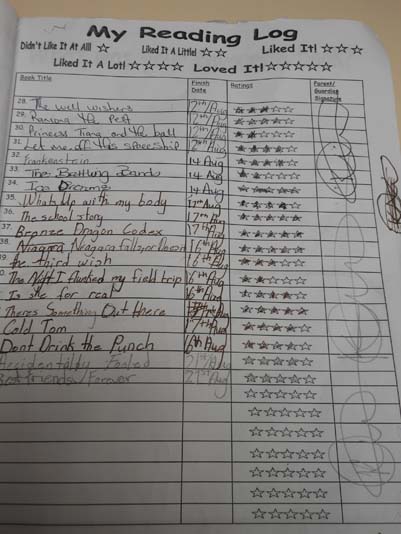 My Reading Log
Didn't Like It At All! ☆ Liked It A Little! ☆☆ Liked It! ☆☆☆
Liked It A Lot! ☆☆☆☆ Loved It! ☆☆☆☆☆
Book Title Finish Date Ratings Parent/Guardian Signature
28. The well wishers 7th/Aug
29. Ramona the Pest
30. Princess Tiana and the ball
31. Let me off this spaceship
32. Frankenstein 14 Aug
33. The Bettling Bands 14 Aug
34. 14 Aug
35. Whats Up with my body 17th Aug
36. The school story 17th Aug
37. Bronze Dragon Codex 17th Aug
38. Niagara 16th Aug
39. the third wish 16th Aug
The I flushed my field trip 16th Aug
Is she for real 16th Aug
Theres Something Out there
Cold Tom 17th Aug
Dont Drink the Punch Aug
Fooled
Best friends Forever 21st Aug